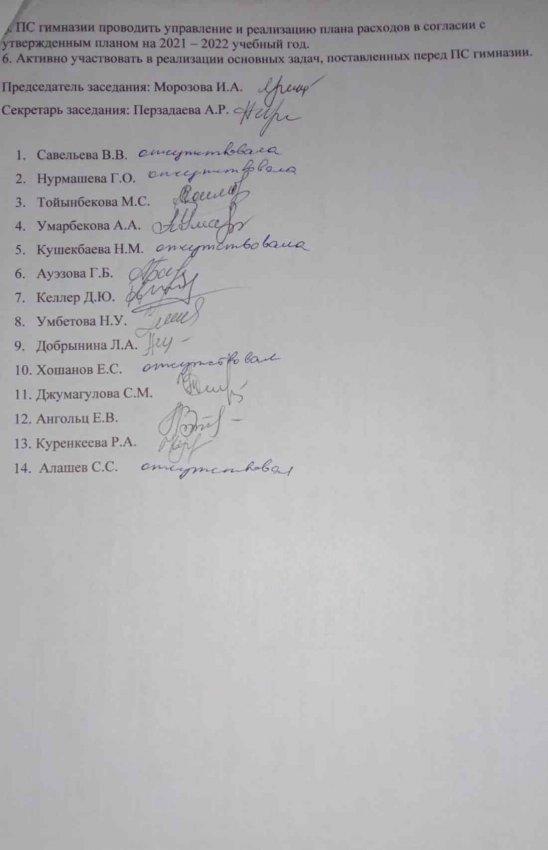 ПС гимназии проводить управление и реализацию плана расходов в согласии с
утвержденным планом на 2021 – 2022 учебный год.
6. Активно участвовать в реализации основных задач, поставленных перед ПС гимназии.
Председатель заседания: Морозова И.А.
Секретарь заседания: Перзадаева А.Р.
1. Савельева В.В. отсутствовала
2. Нурмашева Г.О. отсутствовала
3. Тойынбекова М.С.
4. Умарбекова А.А.
5. Кушекбаева Н.М. отсутствовала
6. Ауэзова Г.Б.
7. Келлер Д.Ю.
8. Умбетова Н.У.
9. Добрынина Л.А.
10. Хошанов Е.С. отсутствовал
11. Джумагулова С.М.
12. Ангольц Е.В.
13. Куренкеева Р.А.
14. Алашев С.С. отсутствовал